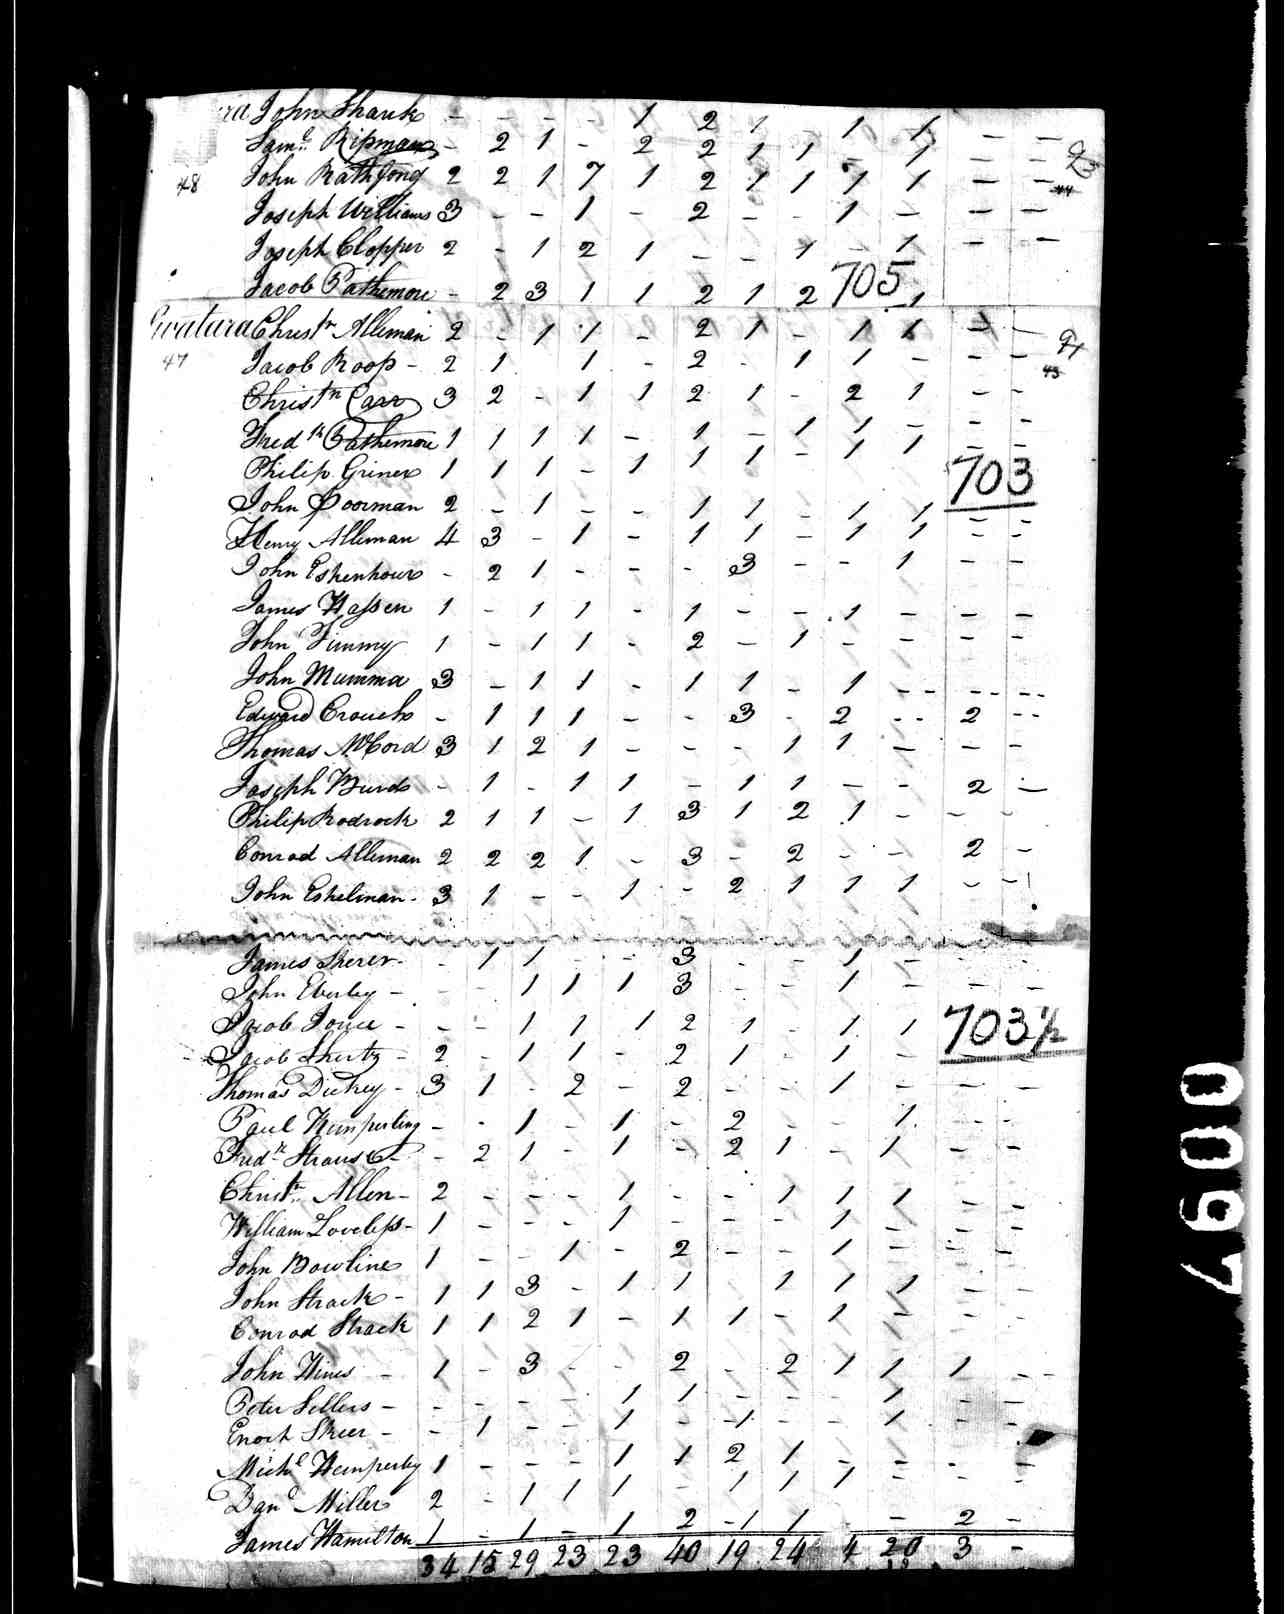 John Shank - - - - 1 2 1 - 1 1 - -
Saml. Ripman - 2 1 - 2 2 1 1 - 1 - -
48 John Rathfong 2 2 1 7 1 2 1 1 1 1 - -
Joseph Williams 3 - - 1 - 2 - - 1 - - -
Joseph Clopper 2 - 1 2 1 - - 1 - 1 - -
Jacob Pathemore - 2 3 1 1 2 1 2 705 1
Swatara Christn Alleman 2 - 1 1 - 2 1 - 1 1 - -
47 Jacob Roop - 2 1 1 - 2 - 1 1 - - -
Christn Carr 3 2 - 1 1 2 1 - 2 1 - -
Fredk Pathemore 1 1 1 1 - 1 - 1 1 - - -
Philip Griner 1 1 1 - 1 1 1 - 1 1 - -
703
John Poorman 2 - 1 - - 1 1 - 1 1 - -
Henry Alleman 4 3 - 1 - 1 1 - 1 1 - -
John Eshenhour - 2 1 - - - 3 - - 1 - -
James Wassen 1 - 1 1 - 1 - - 1 - - -
John Timmy 1 - 1 1 - 2 - 1 - - - -
John Mumma 3 - 1 1 - 1 1 - 1 - - -
Edward Crouch - 1 1 1 - - 3 - 2 - 2 -
Thomas McCord 3 1 2 1 - - - 1 1 - - -
Joseph Burd - 1 - 1 1 - 1 1 - - 2 -
Philip Rodrock 2 1 1 - 1 3 1 2 1 - - -
Conrad Alleman 2 2 2 1 - 3 - 2 - - 2 -
John Eshelman - 3 1 - - 1 - 2 1 1 1 - -
James Sherer - - 1 1 - - 3 - - 1 - - -
John Eberley - - - 1 1 1 3 - - 1 - - -
Jacob - - - 1 1 1 2 1 - 1 1 703½
Jacob Shertz - 2 - 1 1 - 2 1 - 1 -
Thomas Dickey - 3 1 - 2 - 2 - - 1 - - -
Paul Kemperling - - 1 - 1 - 2 - - 1 - -
Fredk Strauser - - 2 1 - 1 - 2 1 - 1 - -
Christn Allen - 2 - - - 1 - - 1 1 1 - -
William Loveless - 1 - - - 1 - - - 1 - - -
John Bowline 1 - - 1 - 2 - - 1 - - -
John Strack - 1 1 3 - 1 1 1 1 1 - -
Conrad Strack 1 1 2 1 - 1 1 - 1 - - -
John Hines - 1 - 3 - - 2 - 2 1 1 1 -
Peter Sellers - - - - - 1 1 - - - 1 - -
Enoch Skeer - - 1 - - 1 - 1 - - 1 - -
Michl Kemperly 1 - - - 1 1 2 1 - - - -
Danl Miller 2 - 1 1 1 - 1 1 1 - - -
James Hamilton 1 - 1 - 1 2 1 1 - - 2 -
34 15 29 23 23 40 19 24 4 20 3 -
0097